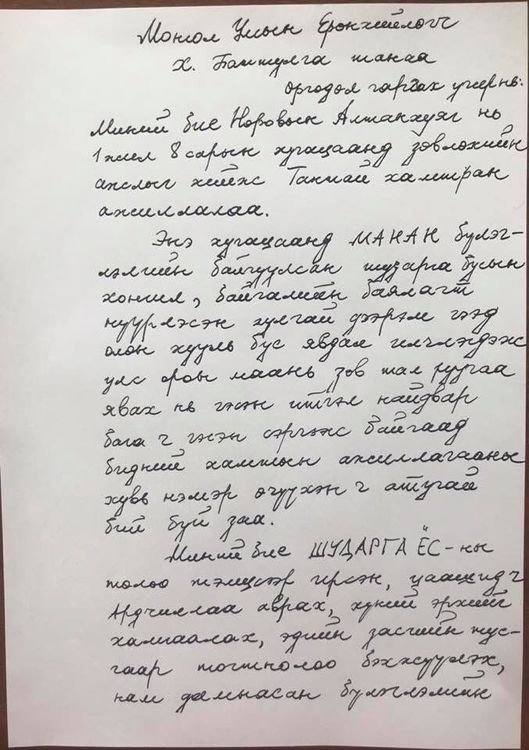 Монгол Улсын Ерөнхийлөгч
Х. Баттулга танаа
өргөдөл гаргах учир нь:
Миний бие Норовын Алтанхуяг нь
1 жил 8 сарын хугацаанд зөвлөхийн
ажлыг хийж Тантай хамтран
ажиллалаа.
Энэ хугацаанд МАНАН бүлэг-
лэлийн байгуулсан шударга бусын
хонгил, байгалийн баялагт
нүүрлэсэн хулгай дээрэм гээд
олон хууль бус явдал илчлэгдэж
улс орон маань зөв тал руугаа
явах нь гэсэн итгэл найдвар
бага ч гэсэн сэргэж байгаад
бидний хамтын ажиллагааны
хувь нэмэр өчүүхэн ч атугай
бий буй заа.
Миний бие ШУДАРГА ЁС-ны
төлөө тэмцсээр ирсэн, цаашид ч
Ардчиллаа аврах, хүний эрхийг
хамгаалах, эдийн засгийн тус-
гаар тогтнолоо бэхжүүлэх,
нам дамнасан бүлэглэлийн